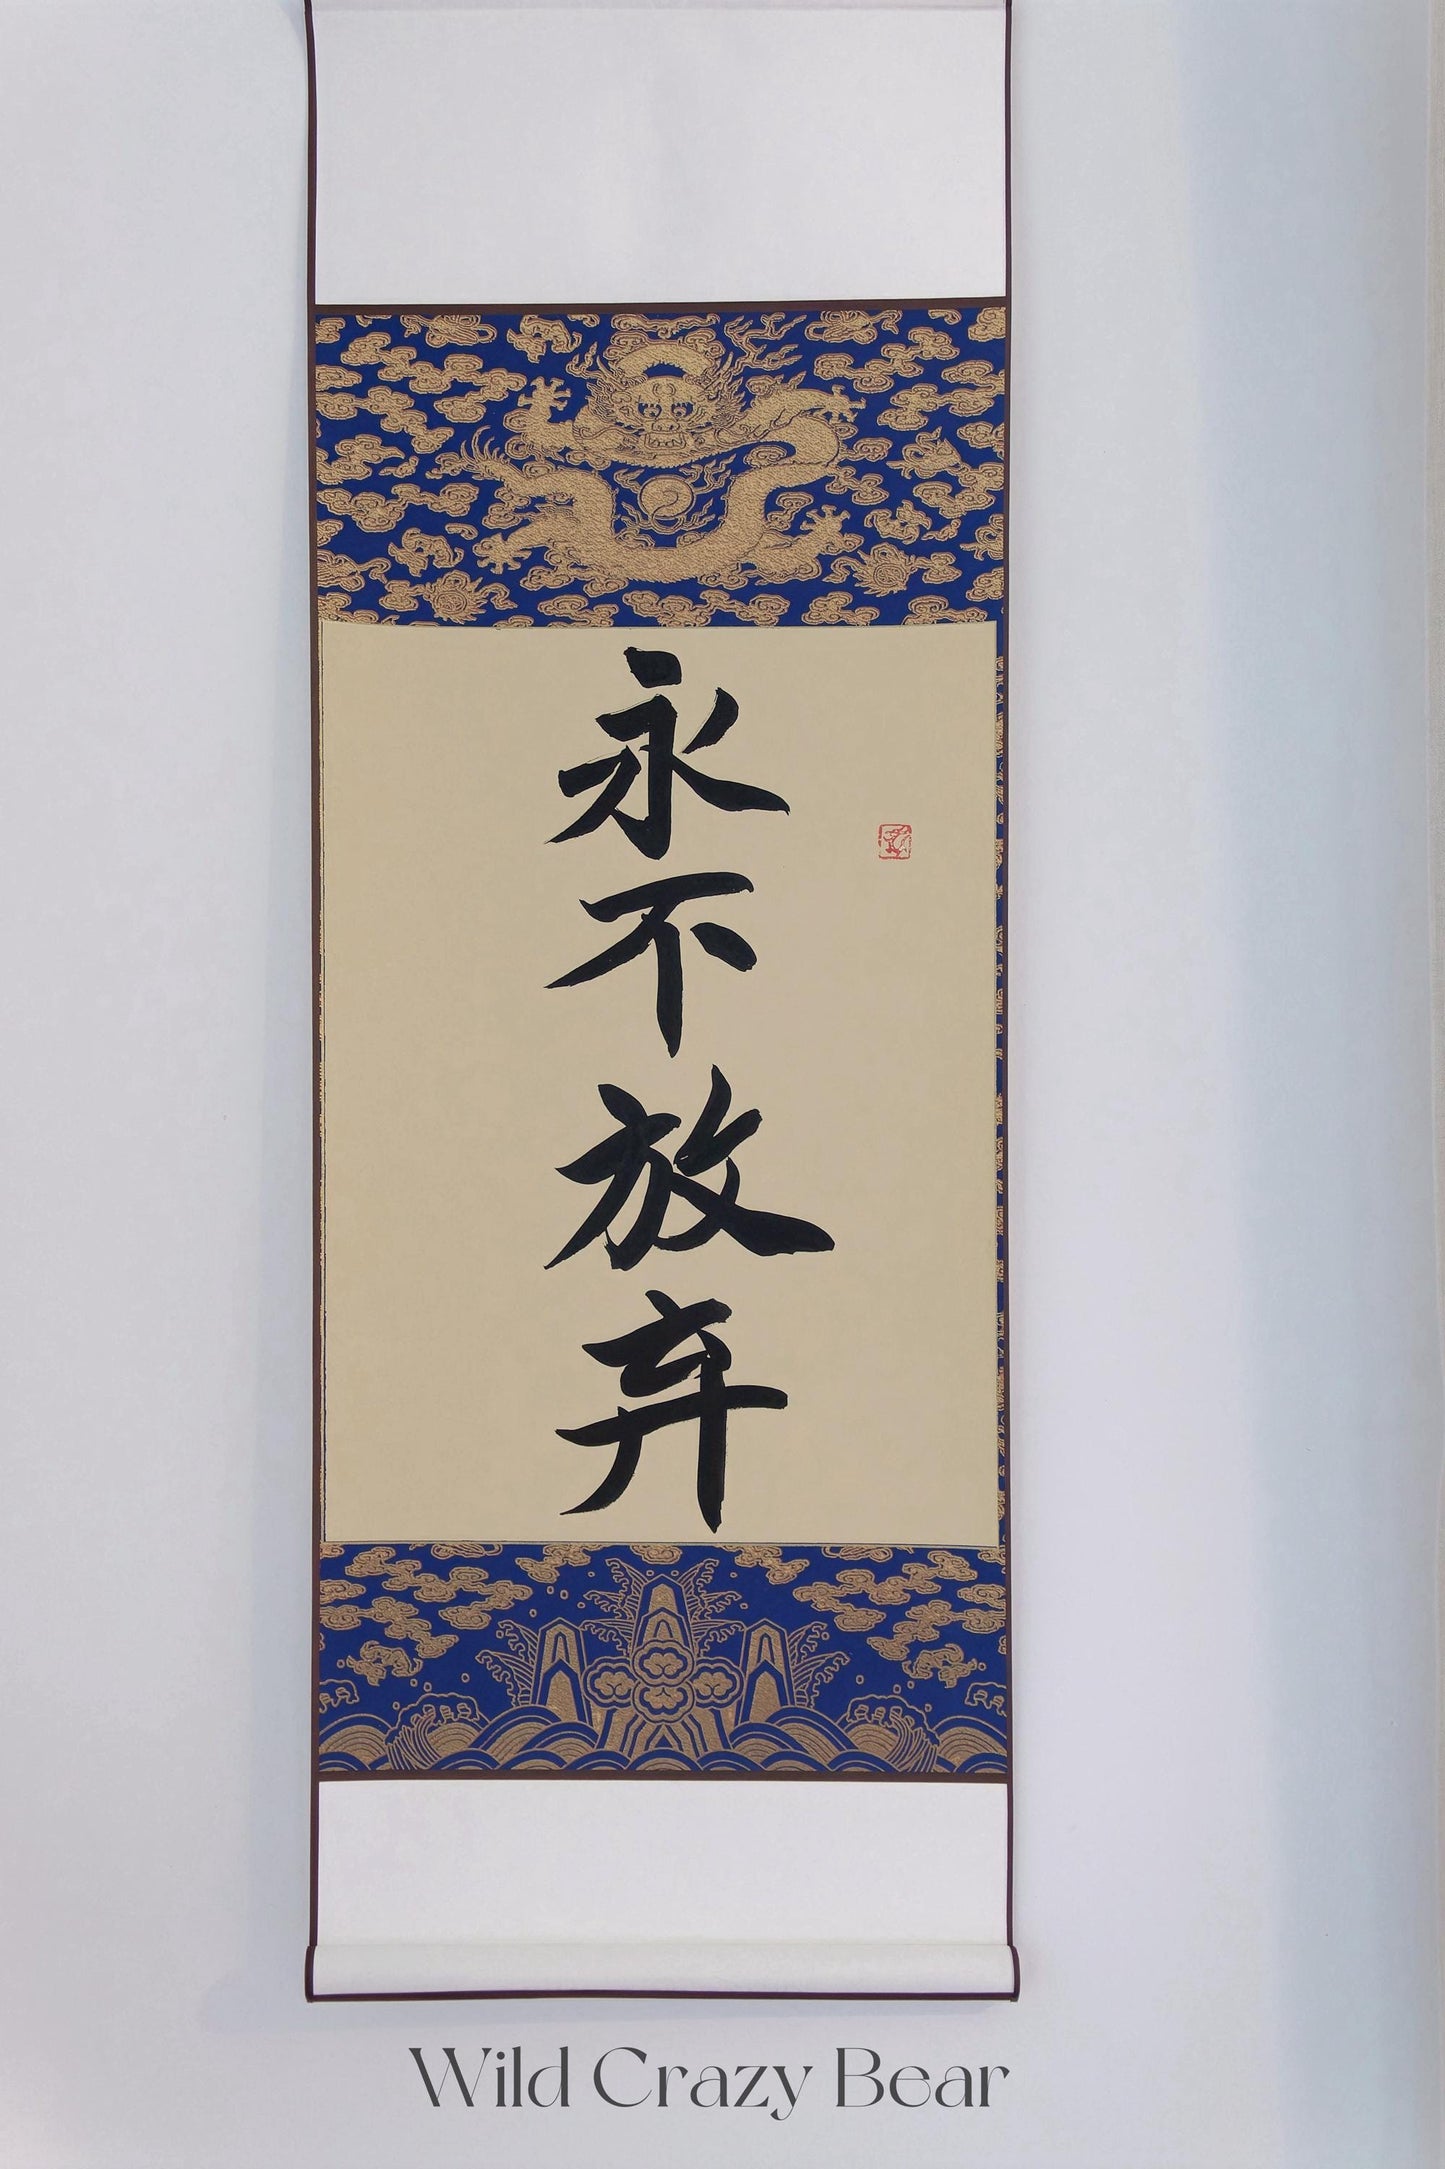 永不放弃
Wild Crazy Bear